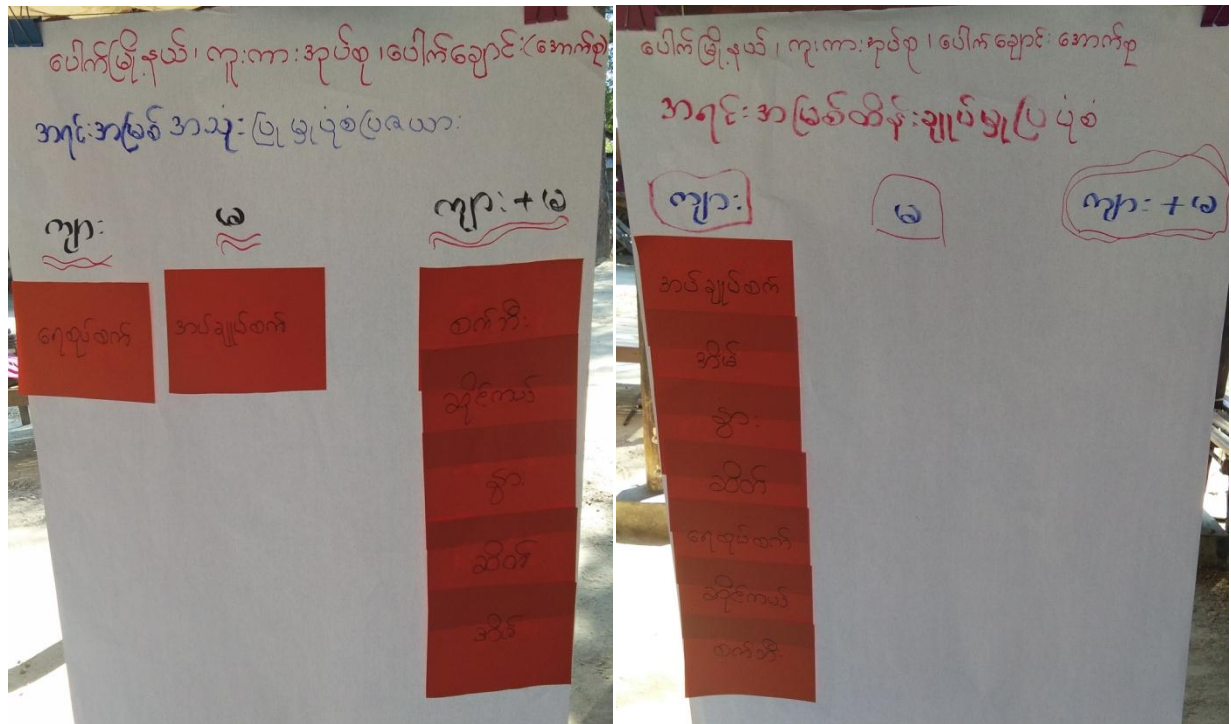 ပေါက်မြို့နယ်၊ ကူးကားအုပ်စု၊ ပေါက်ချောင်း(အောက်စု)
အရင်းအမြစ် အသုံးပြုမှုပုံစံပြဇယား
ကျား
မ
ကျား + မ
ရေစုပ်စက်
အပ်ချုပ်စက်
စက်ဘီး
ဆိုင်ကယ်
နွား
ဆိတ်
အိမ်
ပေါက်မြို့နယ်၊ ကူးကားအုပ်စု၊ ပေါက်ချောင်း အောက်စု
အရင်းအမြစ်ထိန်းချုပ်မှုပြပုံစံ
ကျား
မ
ကျား + မ
အပ်ချုပ်စက်
အိမ်
နွား
ဆိတ်
ရေစုပ်စက်
ဆိုင်ကယ်
စက်ဘီး